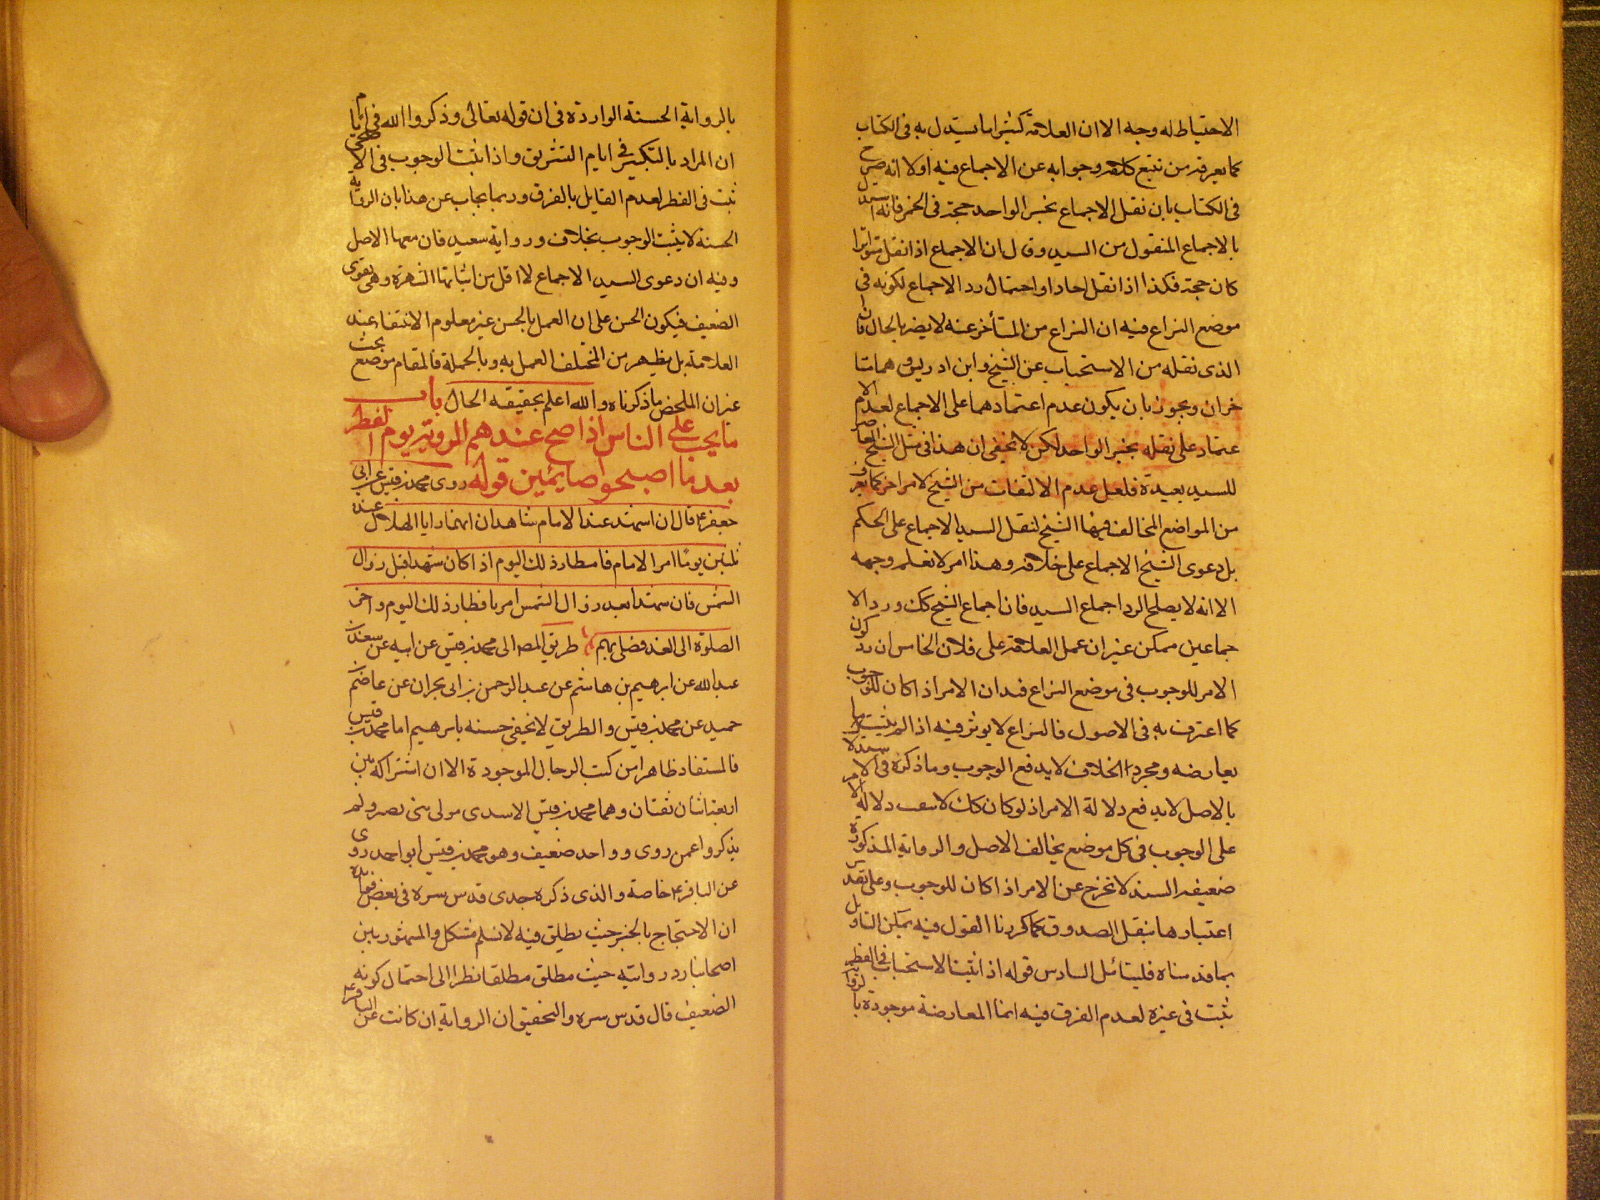 الاحتياط له وجه الا ان العلامة كثيرا ما يستدل به في الكتاب
كما يعرفه من تتبع كلامه وجوابه عن الاجماع فيه اولا انه صرح
في الكتاب بان نقل الاجماع بخبر الواحد حجة في الخمر فانه استدل
بالاجماع المنقول من السيد وقال ان الاجماع اذا نقل متواترا
كان حجة فكذا اذا نقل احادا واحتمال رد الاجماع لكونه في
موضع النزاع فيه ان النزاع من المتأخر عنه لا يضر بالحال فان
الذي نقله من الاستحباب عن الشيخ وابن ادريس وهما متا
خران ويجوز بان يكون عدم اعتمادهما على الاجماع لعدم الا
عتماد على نقله بخبر الواحد لكن لا يخفى ان هذا في مثل الشيخ المعاصر
للسيد بعيدة فلعل عدم الالتفات من الشيخ لامر اخر كما يعرف
من المواضع المخالف فيها الشيخ لنقل السيد الاجماع على الحكم
بل دعوى الشيخ الاجماع على خلافه وهذا امر لا نعلم وجهه
الا انه لا يصلح لرد اجماع السيد فان اجماع الشيخ كك ورد الا
جماعين ممكن غير ان عمل العلامة على فلان الخامس ان كون
الامر للوجوب في موضع النزاع فيه ان الامر اذا كان للوجوب
كما اعترف به في الاصول فالنزاع لا يوثر فيه اذا لم يثبت ما
يعارضه ومجرد الخلاف لا يدفع الوجوب وما ذكره في الامر
بالاصل لا يدفع دلالة الامر اذ لو كان كك لا دلالة الامر
على الوجوب في كل موضع يخالف الاصل والرواية المذكورة
ضعيفة السند لا تخرج عن الامر اذا كان للوجوب وعلى تقدير
اعتبارها بنقل الصدوق كما كررنا القول فيه يمكن التاويل
بما قدمناه فليتأمل السادس قوله اذا اثبتنا الاستحباب في الفطر
ثبت في غيره لعدم الفرق فيه انما المعارضة موجودة بالرواية
بالرواية الحسنة الواردة في ان قوله تعالى وذكروا الله في ايام
ان المراد بالتكبير في ايام التشريق واذا ثبت الوجوب في الاضحى
ثبت في الفطر لعدم القايل بالفرق وربما يجاب عن هذا بان الرواية
الحسنة لا يثبت الوجوب بخلاف ورواية سعيد فان معها الاصل
وفيه ان دعوى السيد الاجماع لا اقل من اثباتها الشهرة وهي تقوى
الضعيف فيكون الحسن على ان العمل بالحسن غير معلوم الانتفاء عند
العلامة بل يظهر من المختلف العمل به وبالجملة فالمقام موضع بحث
غير ان الملخص ما ذكرناه والله اعلم بحقيقة الحال باب
ما يجب على الناس اذا صح عندهم الروية يوم الفطر
بعد ما اصبحوا صايمين قوله روى محمد بن قيس عن ابي
جعفر ع قال ان اشهد عند الامام شاهدان انهما رايا الهلال منذ
ثلثين يوما امر الامام فامطار ذلك اليوم اذا كان شهدا قبل زوال
الشمس فان شهدا بعد زوال الشمس امر بافطار ذلك اليوم واخر
الصلوة الى الغد فصلى بهم طريق المص الى محمد بن قيس عن ابيه عن سعد بن
عبد الله عن ابرهيم بن هاشم عن عبد الرحمن بن ابي نجران عن عاصم بن
حميد عن محمد بن قيس والطريق لا يخفى حسنه بابرهيم اما محمد بن قيس
فالمستفاد ظاهرا من كتب الرجال الموجودة الا ان اشتراكه بين
اربعة اثنان ثقتان وهما محمد بن قيس الاسدي مولى بني نصر ولم
يذكروا عمن روى وواحد ضعيف وهو محمد بن قيس ابو احمد روى
عن الباقر ع خاصة والذي ذكره جدي قدس سره في بعض فوايده
ان الاحتجاج بالخبر حيث يطلق فيه لا نسلم مشكل والمشهور بين
اصحابنا رد روايته حيث مطلق مطلقا نظرا الى احتمال كونه
الضعيف قال قدس سره والتحقيق ان الرواية ان كانت عن الباقر ع